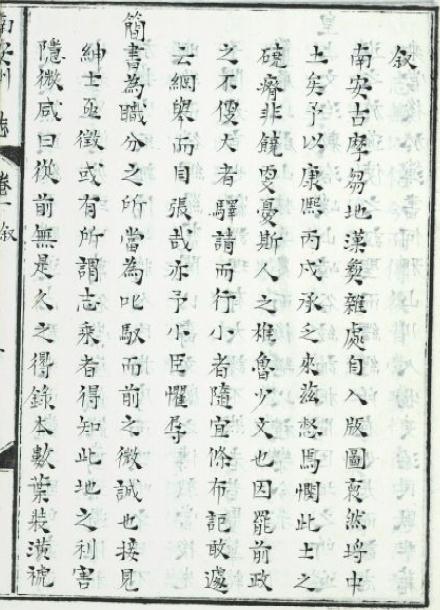 叙
南安古摩芻地漢㸑雜處自入版圖裒然埒中
土矣予以康熙丙戍承乏來兹愁焉憫此土之
磽瘠非饒更憂斯人之椎魯少文也因罷前政
之不便大者驛請而行小者隨宜條布詎敢遽
云綱舉而目張哉亦予小臣懼辱
簡書為職分之所當為叱馭而前之微誠也接見
紳士亟徵或有所謂志乘者得知此地之利害
隱微咸曰從前無是久之得錄本數葉装潢褫
南安州志 卷一 叙